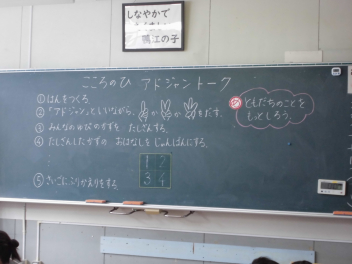 しなやかで
鴨江の子
こころのひ アドジャントーク
① はんをつくる。
② 「アドジャン」としいながら、 か か をだす。
③ みんなのゆびのかずを たしざんする。
④ たしざんしたかずの おはなしを じゅんばんにする。
1 2
3 4
⑤ さいごにふりかえりをする。
め ともだちのことを
もっとしろう。